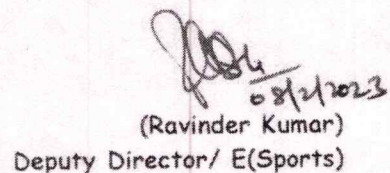 08/2/2023
(Ravinder Kumar)
Deputy Director/ E(Sports)